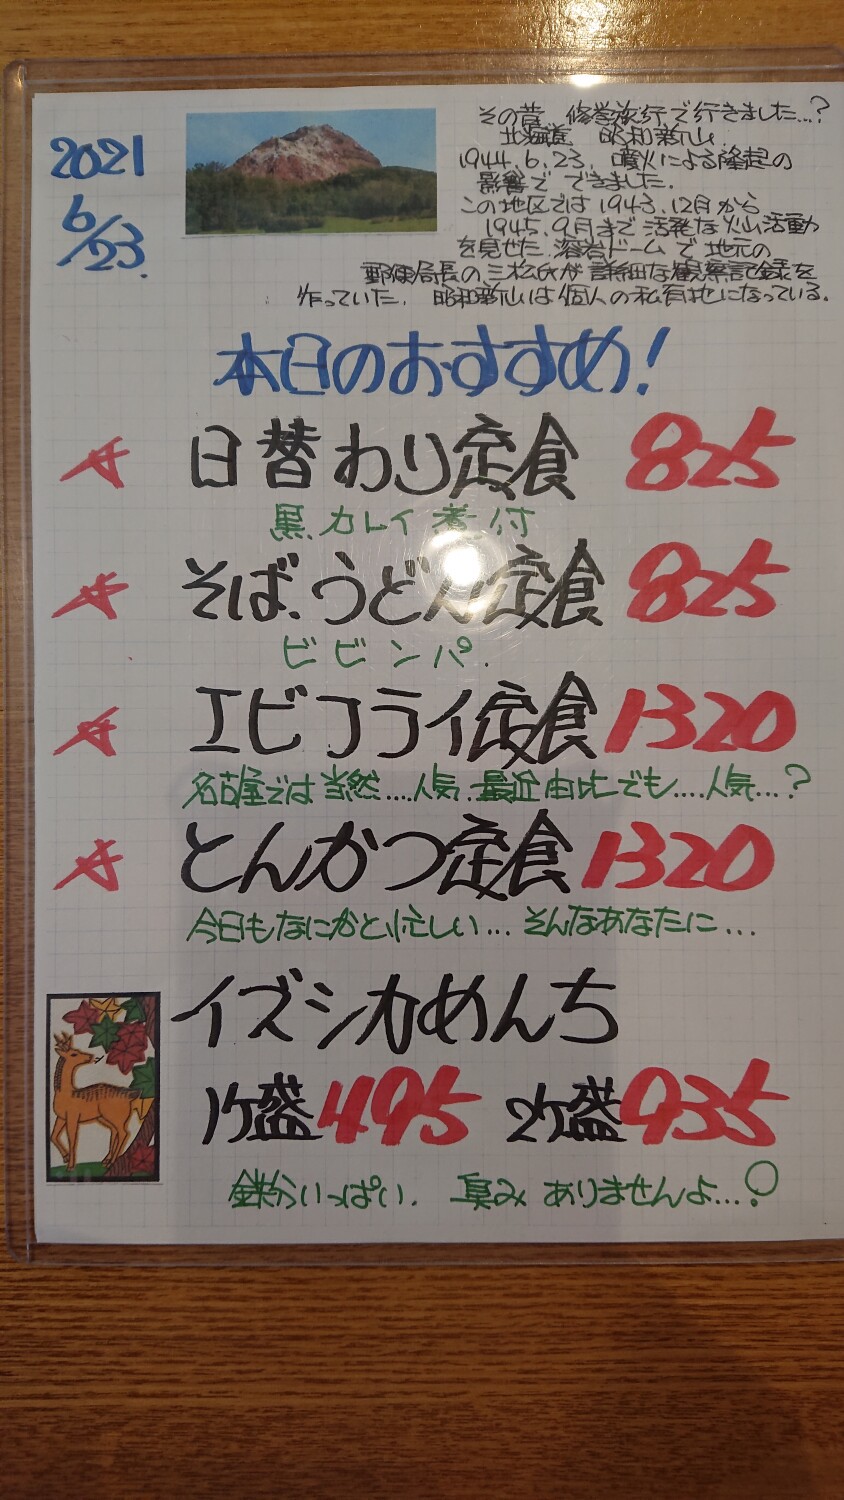 2021
6/23.
その昔 修学旅行で行きました…?
北海道 昭和新山.
1944.6.23, 噴火による隆起の
影響で できました.
この地区では 1943.12月から
1945.9月まで 活発な火山活動
を見せた.溶岩ドームで 地元の
郵便局長の 三松氏が 詳細な観察記録を
作っていた. 昭和新山は個人の私有地になっている.
本日のおすすめ!
日替わり定食 825
黒カレイ煮付
そば、うどん定食 825
ビビンパ.
エビフライ定食 1320
名古屋では当然....人気.最近由比でも....人気...?
とんかつ定食 1320
今日もなにかと忙しい... そんなあなたに...
イズシカめんち
1ケ盛 495 2ケ盛 935
鉄分いっぱい. 臭み ありませんよ...!